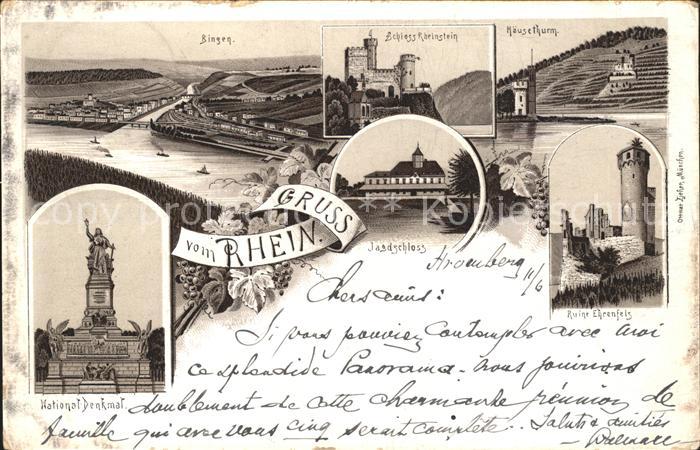 Bingen.
Schloss Rheinstein
Mäusethurm.
GRUSS
vom RHEIN.
Jagdschloss
Ottmar Zieher, München.
Ruine Ehrenfels
National Denkmal.
11/6
Chers amis:
Si vous pouviez contempler avec moi
ce splendide Panorama. nous jouirions
doublement de cette charmante réunion de
famille qui avec vous cinq serait complète... Saluts & amitiés